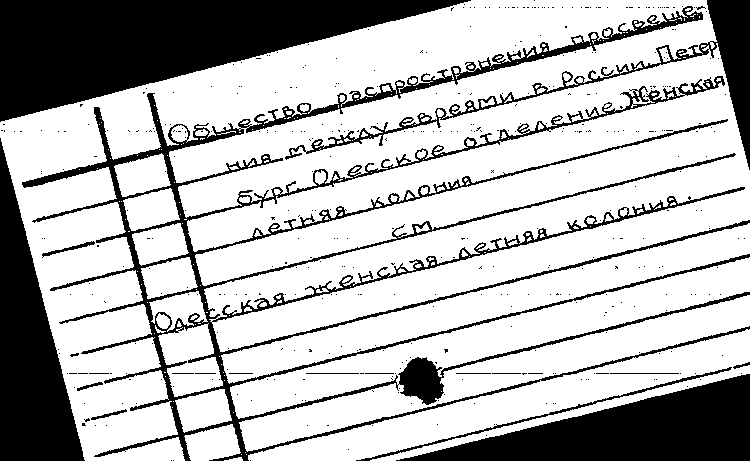 Общество распространения просвеще-
ния между евреями в России. Петер
бург. Одесское отделение. Женская
летняя колония
см.
Одесская женская летняя колония.